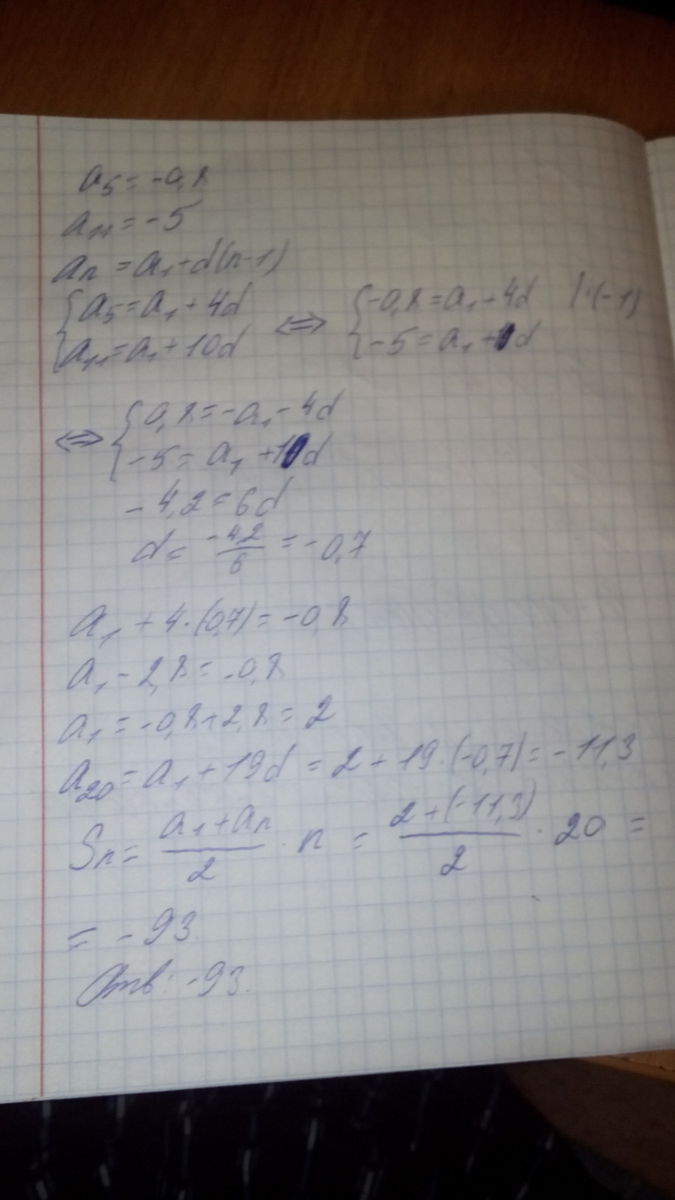 a₅ = -0,8
a₁₁ = -5
aₙ = a₁ + d(n-1)
{ a₅ = a₁ + 4d
{ a₁₁ = a₁ + 10d
⇔ { -0,8 = a₁ + 4d | ·(-1)
{ -5 = a₁ + 10d
⇔ { 0,8 = -a₁ - 4d
{ -5 = a₁ + 10d
-4,2 = 6d
d = -4,2/6 = -0,7
a₁ + 4·(0,7) = -0,8
a₁ - 2,8 = -0,8
a₁ = -0,8 + 2,8 = 2
a₂₀ = a₁ + 19d = 2 + 19·(-0,7) = -11,3
Sₙ = (a₁ + aₙ)/2 · n = (2 + (-11,3))/2 · 20 =
= -93
Отв: -93.